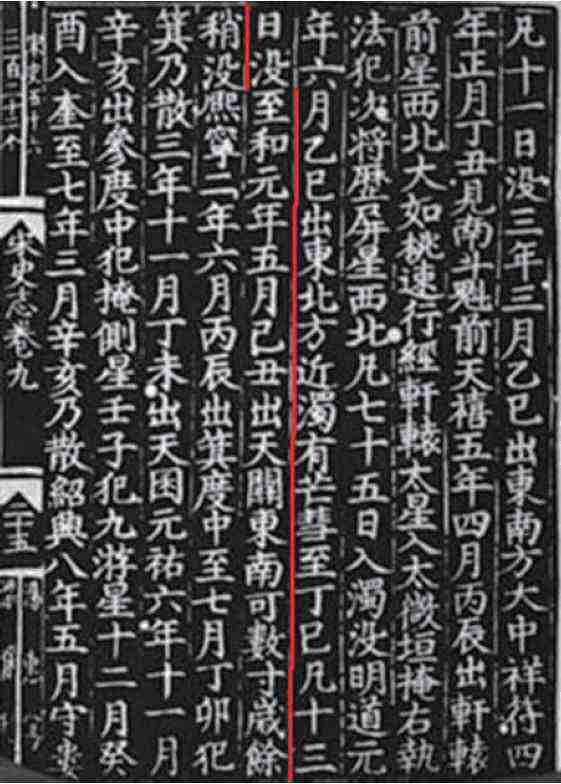 凡十一日没三年三月乙巳出東南方大中祥符四
年正月丁丑見南斗魁前天禧五年四月丙辰出軒轅
前星西北大如桃速行經軒轅太星入太微垣掩右執
法犯次將歷屏星西北凡七十五日入濁没明道元
年六月乙巳出東北方近濁有芒彗至丁巳凡十三
日没至和元年五月己丑出天關東南可數寸歲餘
稍没熙寧二年六月丙辰出箕度中至七月丁卯犯
箕乃散三年十一月丁未出天囷元祐六年十一月
辛亥出參度中犯掩側星壬子犯九游星十二月癸
酉入奎至七年三月辛亥乃散紹興八年五月守婁
宋史志卷九
二十五